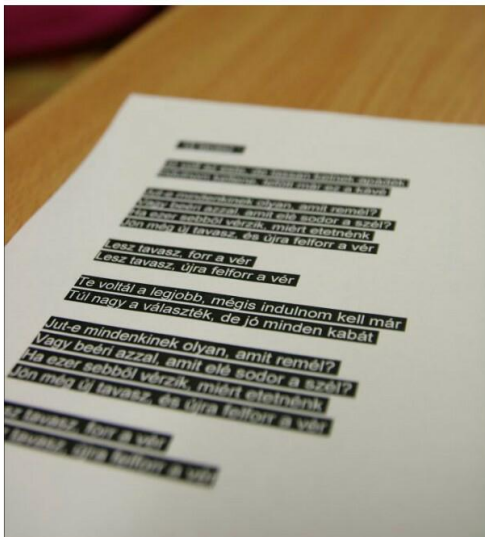 Új tavasz
Jut-e mindenkinek olyan, amit remél?
Vagy beéri azzal, amit elé sodor a szél?
Ha ezer sebből vérzik, miért etetnénk
Jön még új tavasz, és újra felforr a vér
Lesz tavasz, forr a vér
Lesz tavasz, újra felforr a vér
Te voltál a legjobb, mégis indulnom kell már
Túl nagy a választék, de jó minden kabát
Jut-e mindenkinek olyan, amit remél?
Vagy beéri azzal, amit elé sodor a szél?
Ha ezer sebből vérzik, miért etetnénk
Jön még új tavasz, és újra felforr a vér
tavasz, forr a vér
tavasz, újra felforr a vér